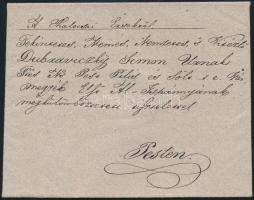 A Kalocsai Érsektől
Tekintetes, Nemes, Nemzetes, és Vitézlő
Dubraviczky Simon Urnak
Ts Ns Pest Pilis és Solt t. e. Vár
megyék Első Al-Ispánnyának
megkülönböztetett tisztelettel
Pesten.